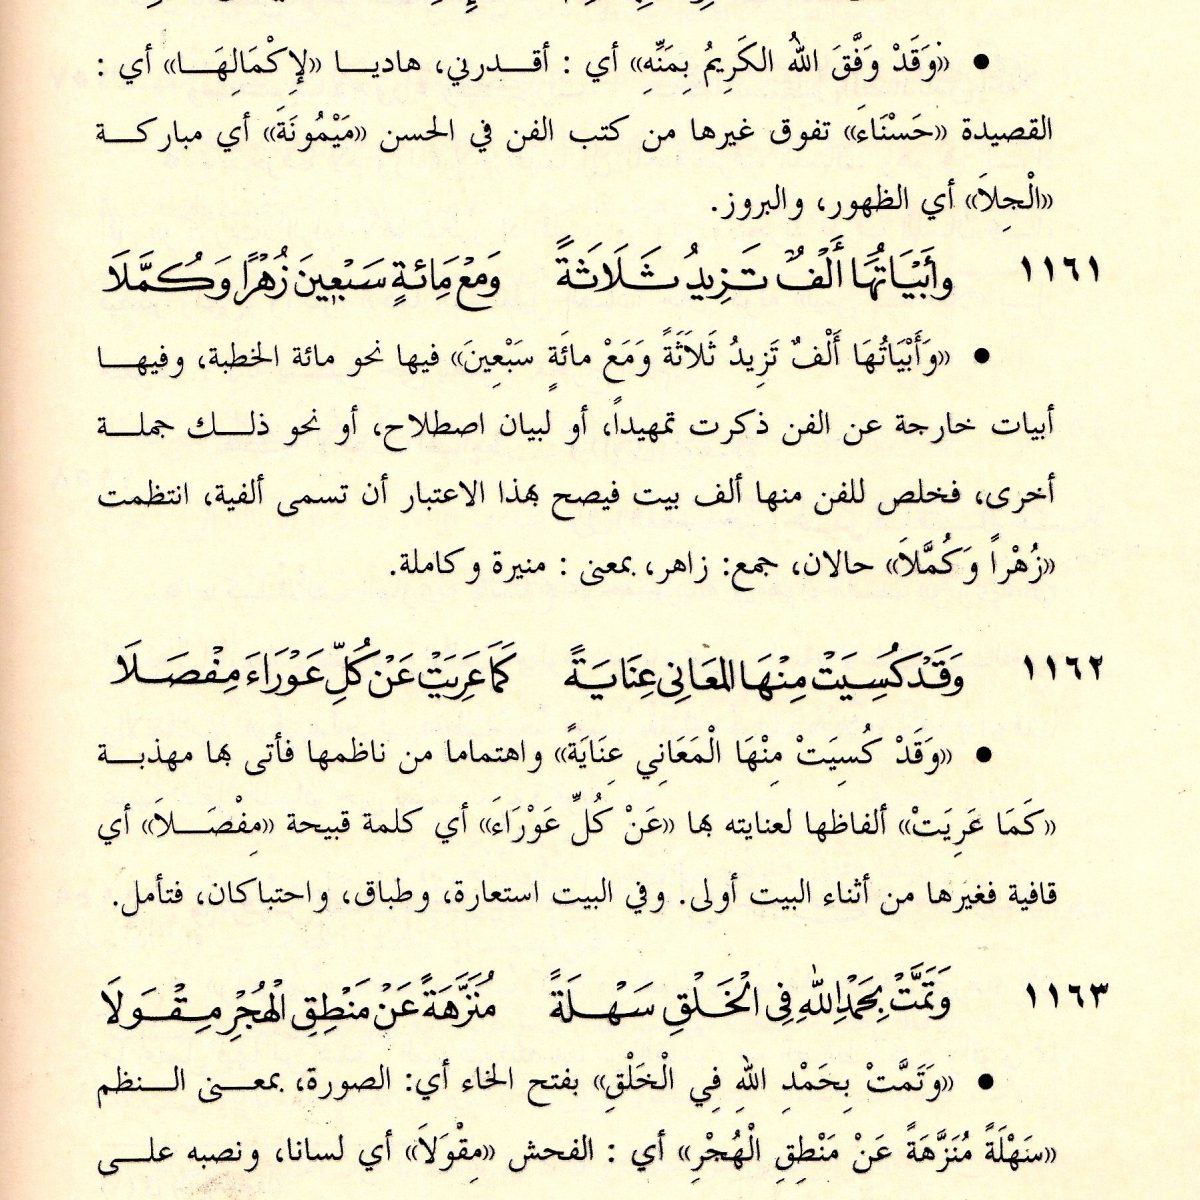 • «وَقَدْ وَفَّقَ اللهُ الكَرِيمُ بِمَنِّهِ» أي : أقـدرني، هاديـا «لإِكْمَالِهَـا» أي :
القصيدة «حَسْنَاءَ» تفوق غيرها من كتب الفن في الحسن «مَيْمُونَةَ» أي مباركـة
«الْجِلاَ» أي الظهور، والبروز.
١١٦١ وأَبْيَاتُهَا أَلْفٌ تَزِيدُ ثَلَاثَةً وَمَعْ مِائةٍ سَبْعِينَ زُهْرًا وَكُمَّلَا
• «وَأَبْيَاتُهَا أَلْفٌ تَزِيدُ ثَلاَثَةً وَمَعْ مائَةٍ سَبْعِينَ» فيها نحو مائة الخطبة، وفيهـا
أبيات خارجة عن الفن ذكرت تمهيداً، أو لبيان اصطلاح، أو نحو ذلـك جملـة
أخرى، فخلص للفن منها ألف بيت فيصح بهذا الاعتبار أن تسمى ألفية، انتظمت
«زُهْراً وَكُمَّلاَ» حالان، جمع: زاهر، بمعنى : منيرة وكاملة.
١١٦٢ وَقَدْ كُسِيَتْ مِنْهَا المَعَانِى عِنَايَةً كَمَا عَرِيَتْ عَنْ كُلِّ عَوْرَاءَ مِفْصَلَا
• «وَقَدْ كُسِيَتْ مِنْهَا الْمَعَانِي عِنَايَةً» واهتماما من ناظمها فأتى بها مهذبـة
«كَمَا عَرِيَتْ» ألفاظها لعنايته بها «عَنْ كُلِّ عَوْرَاءَ» أي كلمة قبيحة «مِفْصَـلاَ» أي
قافية فغيرها من أثناء البيت أولى. وفي البيت استعارة، وطباق، واحتباكان، فتأمل.
١١٦٣ وَتَمَّتْ بِحَمْدِ اللهِ فِى الْخَلْقِ سَهْلَةً مُنَزَّهَةً عَنْ مَنْطِقِ الْهُجْرِ مِقْوَلَا
• «وَتَمَّتْ بِحَمْدِ اللهِ فِي الْخَلْقِ» بفتح الخاء أي: الصورة، بمعنـى الـنظم
«سَهْلَةً مُنَزَّهَةً عَنْ مَنْطِقِ الْهُجْرِ» أي : الفحش «مِقْوَلاَ» أي لسانا، ونصبه علـى